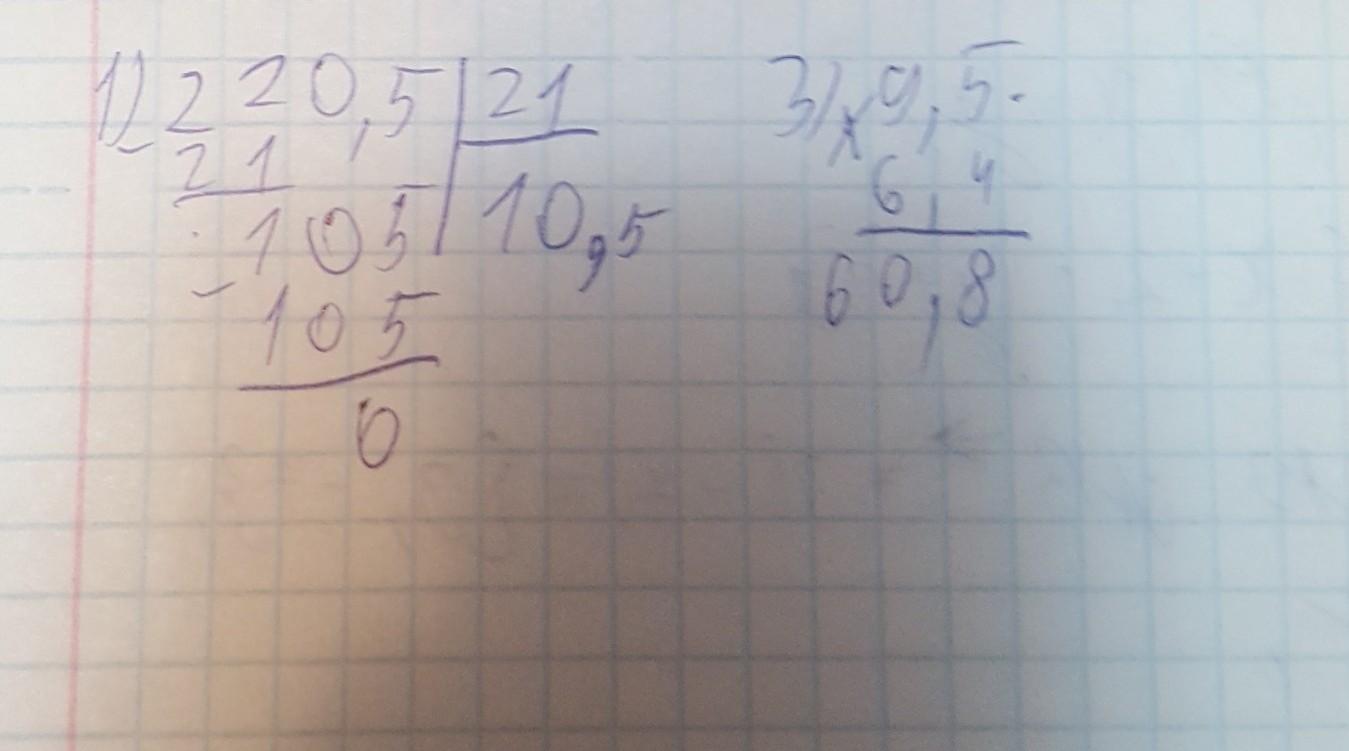 1) 220,5 | 21
- 21 10,5
105
- 105
0
3) x 9,5
6,4
60,8